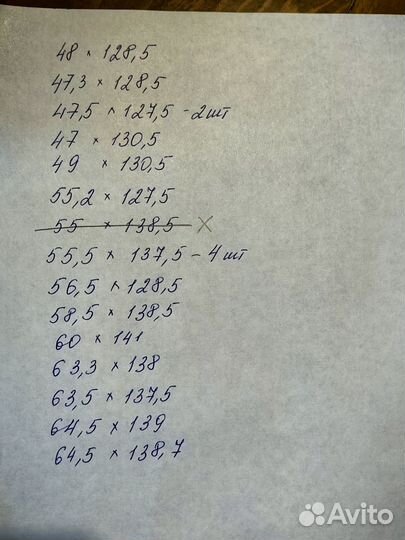 48 × 128,5
47,3 × 128,5
47,5 × 127,5 - 2 шт
47 × 130,5
49 × 130,5
55,2 × 127,5
55 × 138,5 ×
55,5 × 137,5 - 4 шт
56,5 × 128,5
58,5 × 138,5
60 × 141
63,3 × 138
63,5 × 137,5
64,5 × 139
64,5 × 138,7
Avito